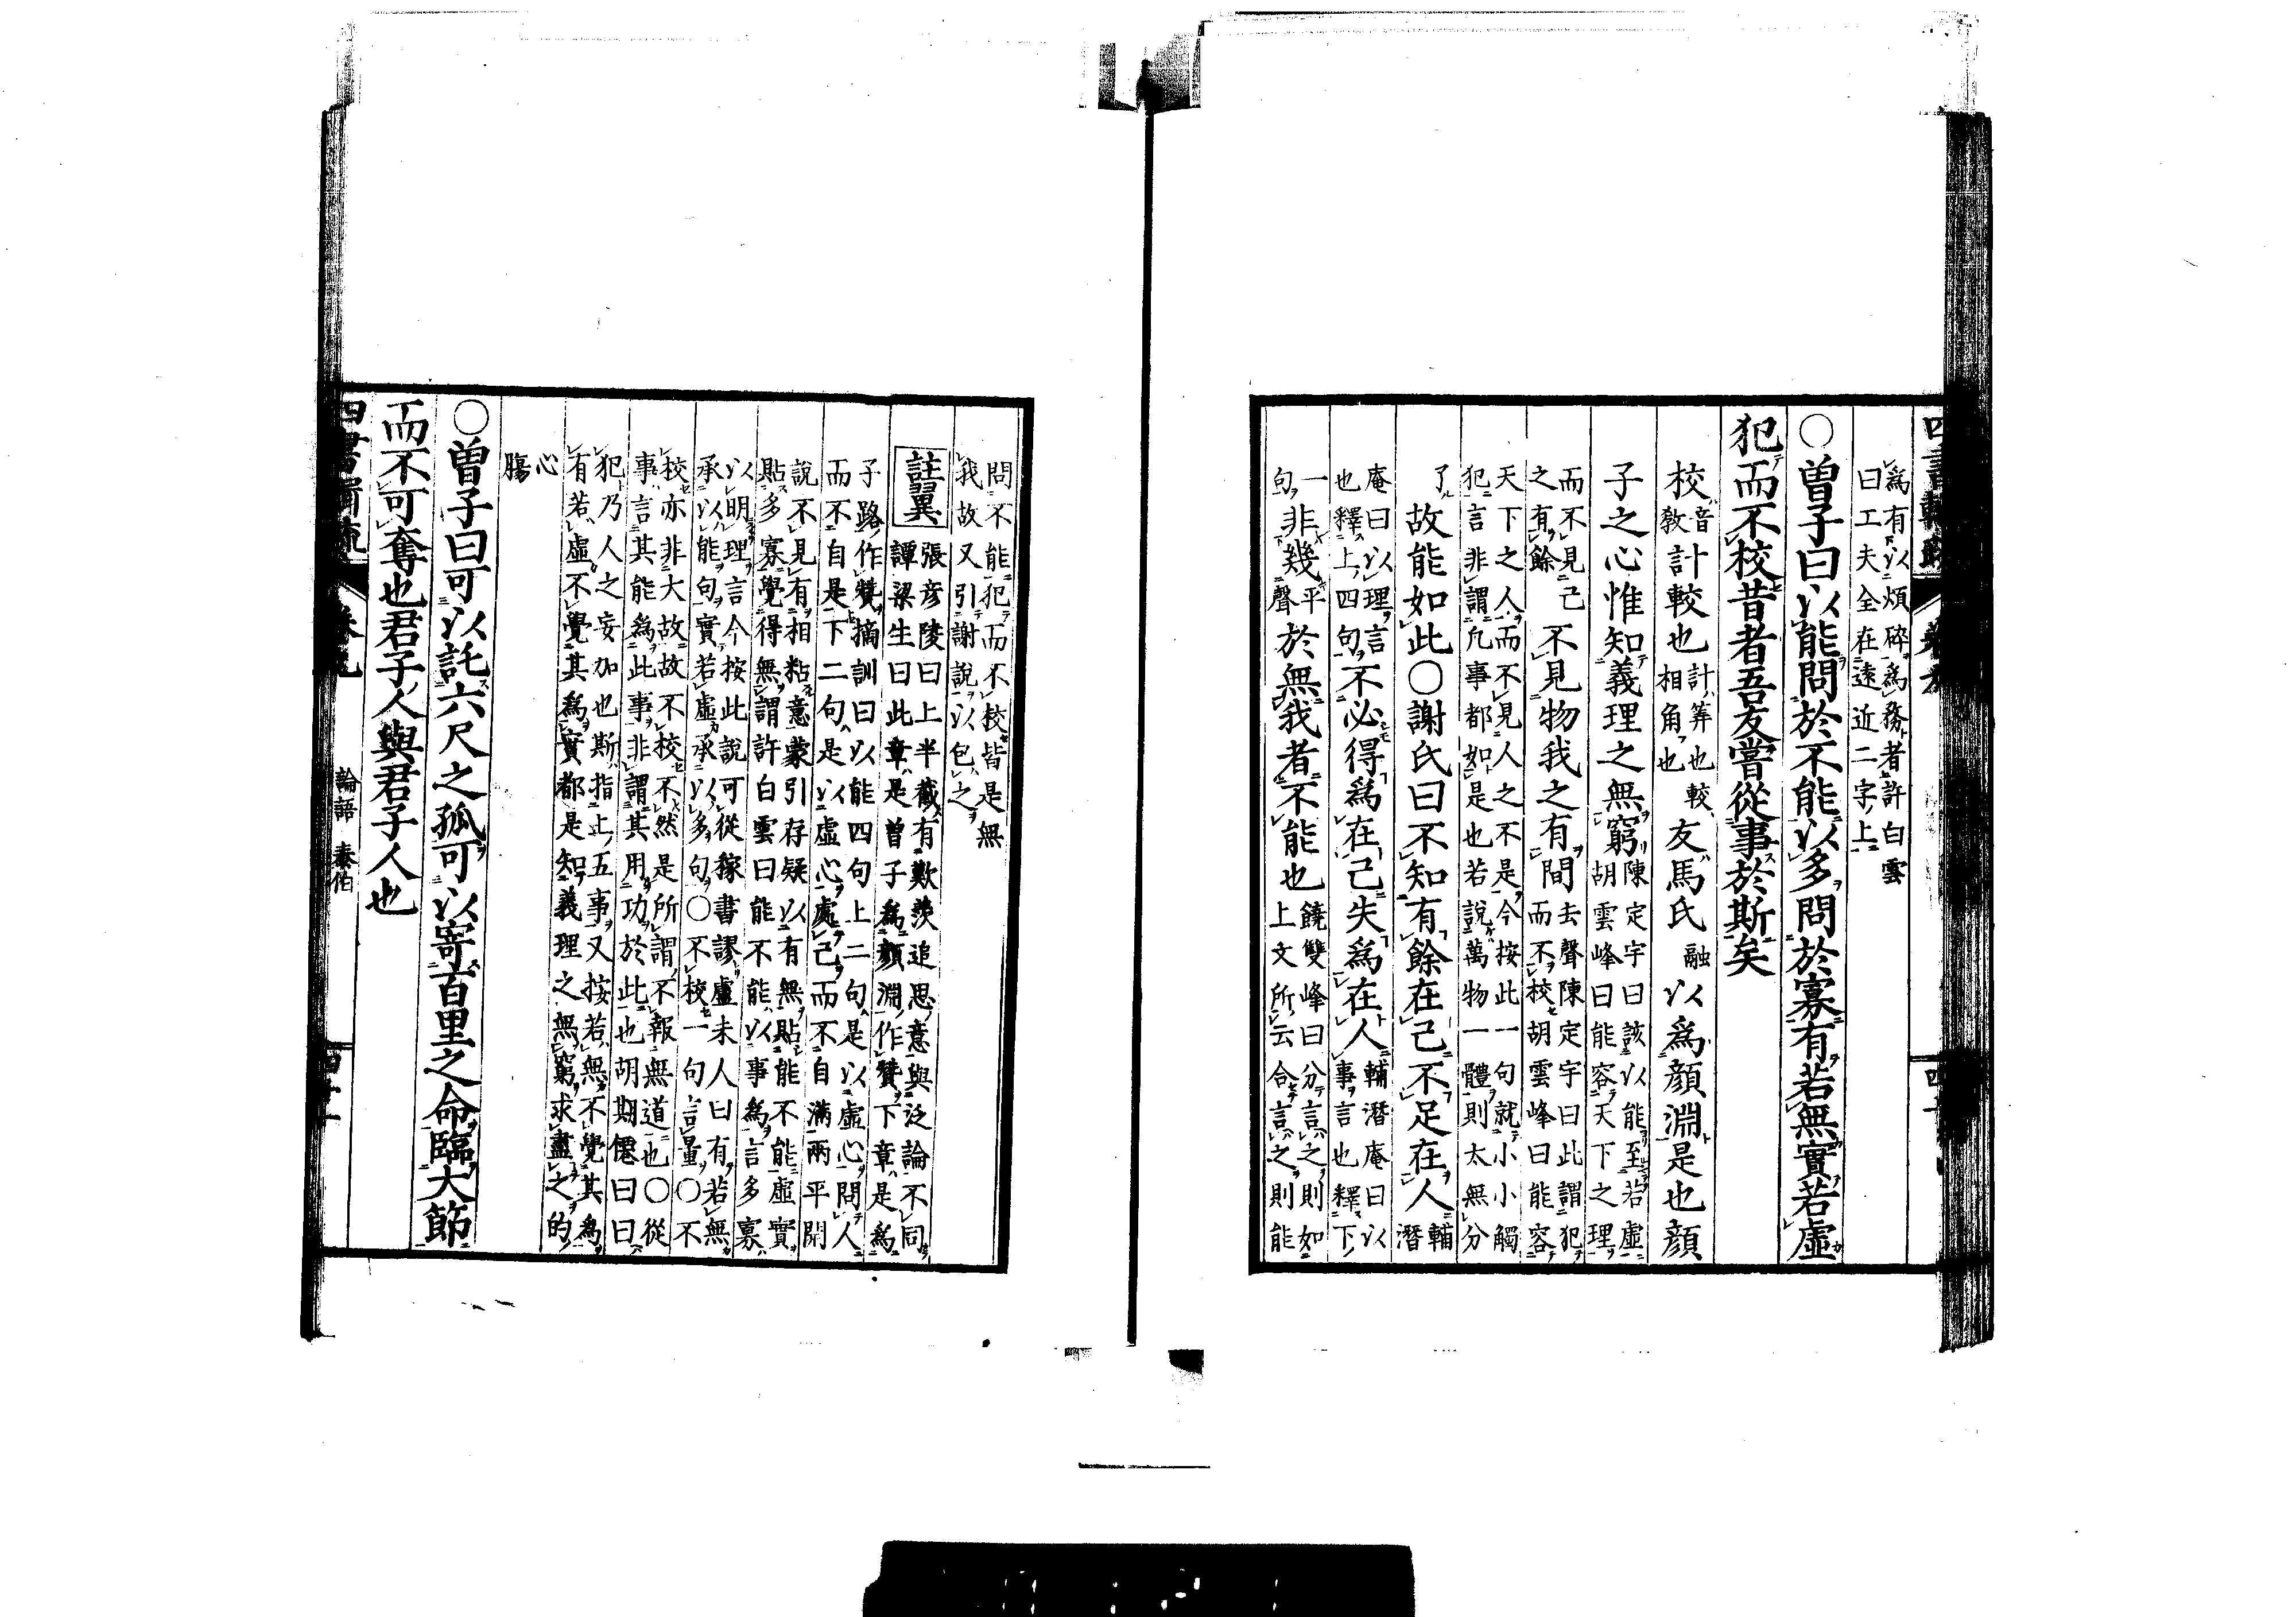 爲有以煩碎爲務者許白雲
曰工夫全在遠近二字上
○曽子曰以能問於不能以多問於寡有若無實若虛
犯而不校昔者吾友嘗從事於斯矣
校音敎計較也計筭也較相角也友馬氏融以爲顔淵是也顔
子之心惟知義理之無窮陳定宇曰該以能至若虛胡雲峰曰能容天下之理
而不見己之有餘不見物我之有間去聲陳定宇曰此謂犯而不校胡雲峰曰能容
天下之人而不見人之不是今按此一句就小小觸
犯言非謂凡事都如是也若說萬物一體則太無分
了故能如此○謝氏曰不知有餘在己不足在人輔潛
庵曰以理言也釋上四句不必得爲在己失爲在人輔潛庵曰以事言也釋下
一句非幾平聲於無我者不能也饒雙峰曰分言之則如上文所云合言之則能
問不能犯而不校皆是無
我故又引謝說以包之
註翼張彦陵曰上半截有歎羨追思意與泛論不同
譚梁生曰此章是曽子爲顔淵作贊下章是爲
子路作贊摘訓曰以能四句上二句是以虛心問人
而不自是下二句是以虛心處己而不自滿兩平開
說不見有相粘意蒙引存疑以有無貼能不能虛實
貼多寡覺得無謂許白雲曰能不能以事爲言多寡
以明理言今按此說可從稼書謬盧未人曰有若無
承以能句實若虛承以多句○不校一句言量○不
校亦非大故故不校不然是所謂不報無道也○從
事言其能爲此事非謂其用功於此也胡期僊曰曰
犯乃人之妄加也斯指上五事又按若無不覺其爲
有若虛不覺其爲實都是知義理之無窮求盡之的
心
膓
○曽子曰可以託六尺之孤可以寄百里之命臨大節
而不可奪也君子人與君子人也
論語 泰伯